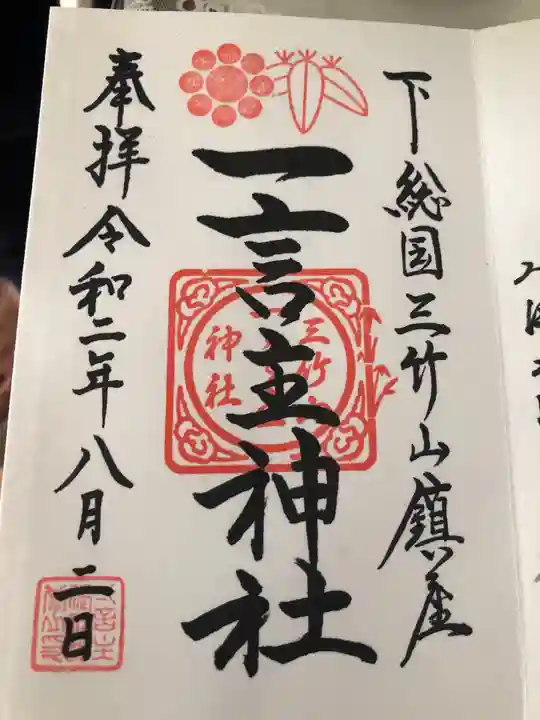 下総国三竹山鎮座
一言主神社
奉拝令和二年八月二日
三竹
神社